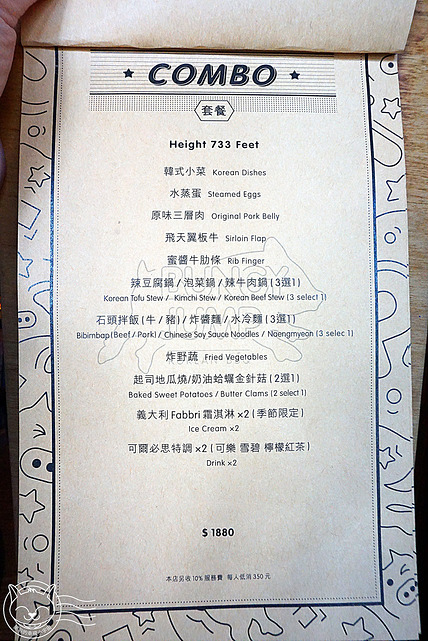 COMBO
套餐
Height 733 Feet
韓式小菜 Korean Dishes
水蒸蛋 Steamed Eggs
原味三層肉 Original Pork Belly
飛天翼板牛 Sirloin Flap
蜜醬牛肋條 Rib Finger
辣豆腐鍋 / 泡菜鍋 / 辣牛肉鍋 (3選1)
Korean Tofu Stew / Kimchi Stew / Korean Beef Stew (3 select 1)
石頭拌飯 (牛 / 豬) / 炸醬麵 / 水冷麵 (3選1)
Bibimbap (Beef / Pork) / Chinese Soy Sauce Noodles / Naengmyeon (3 selec 1)
炸野蔬 Fried Vegetables
起司地瓜燒/奶油蛤蠣金針菇 (2選1)
Baked Sweet Potatoes / Butter Clams (2 select 1)
義大利 Fabbri 霜淇淋 ×2 (季節限定)
Ice Cream ×2
可爾必思特調 ×2 (可樂 雪碧 檸檬紅茶)
Drink ×2
$ 1880
本店另收 10% 服務費 每人低消 350 元